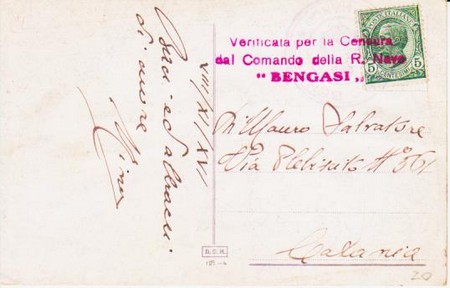 Baci ed abbracci
di cuore
VIII/XI/XVI
Verificata per la Censura
dal Comando della R. Nave
" BENGASI "
POSTE ITALIANE
5 5
CENTESIMI
Mauro Salvatore
Via Plebiscito N°
Catania
D.C.M.
20